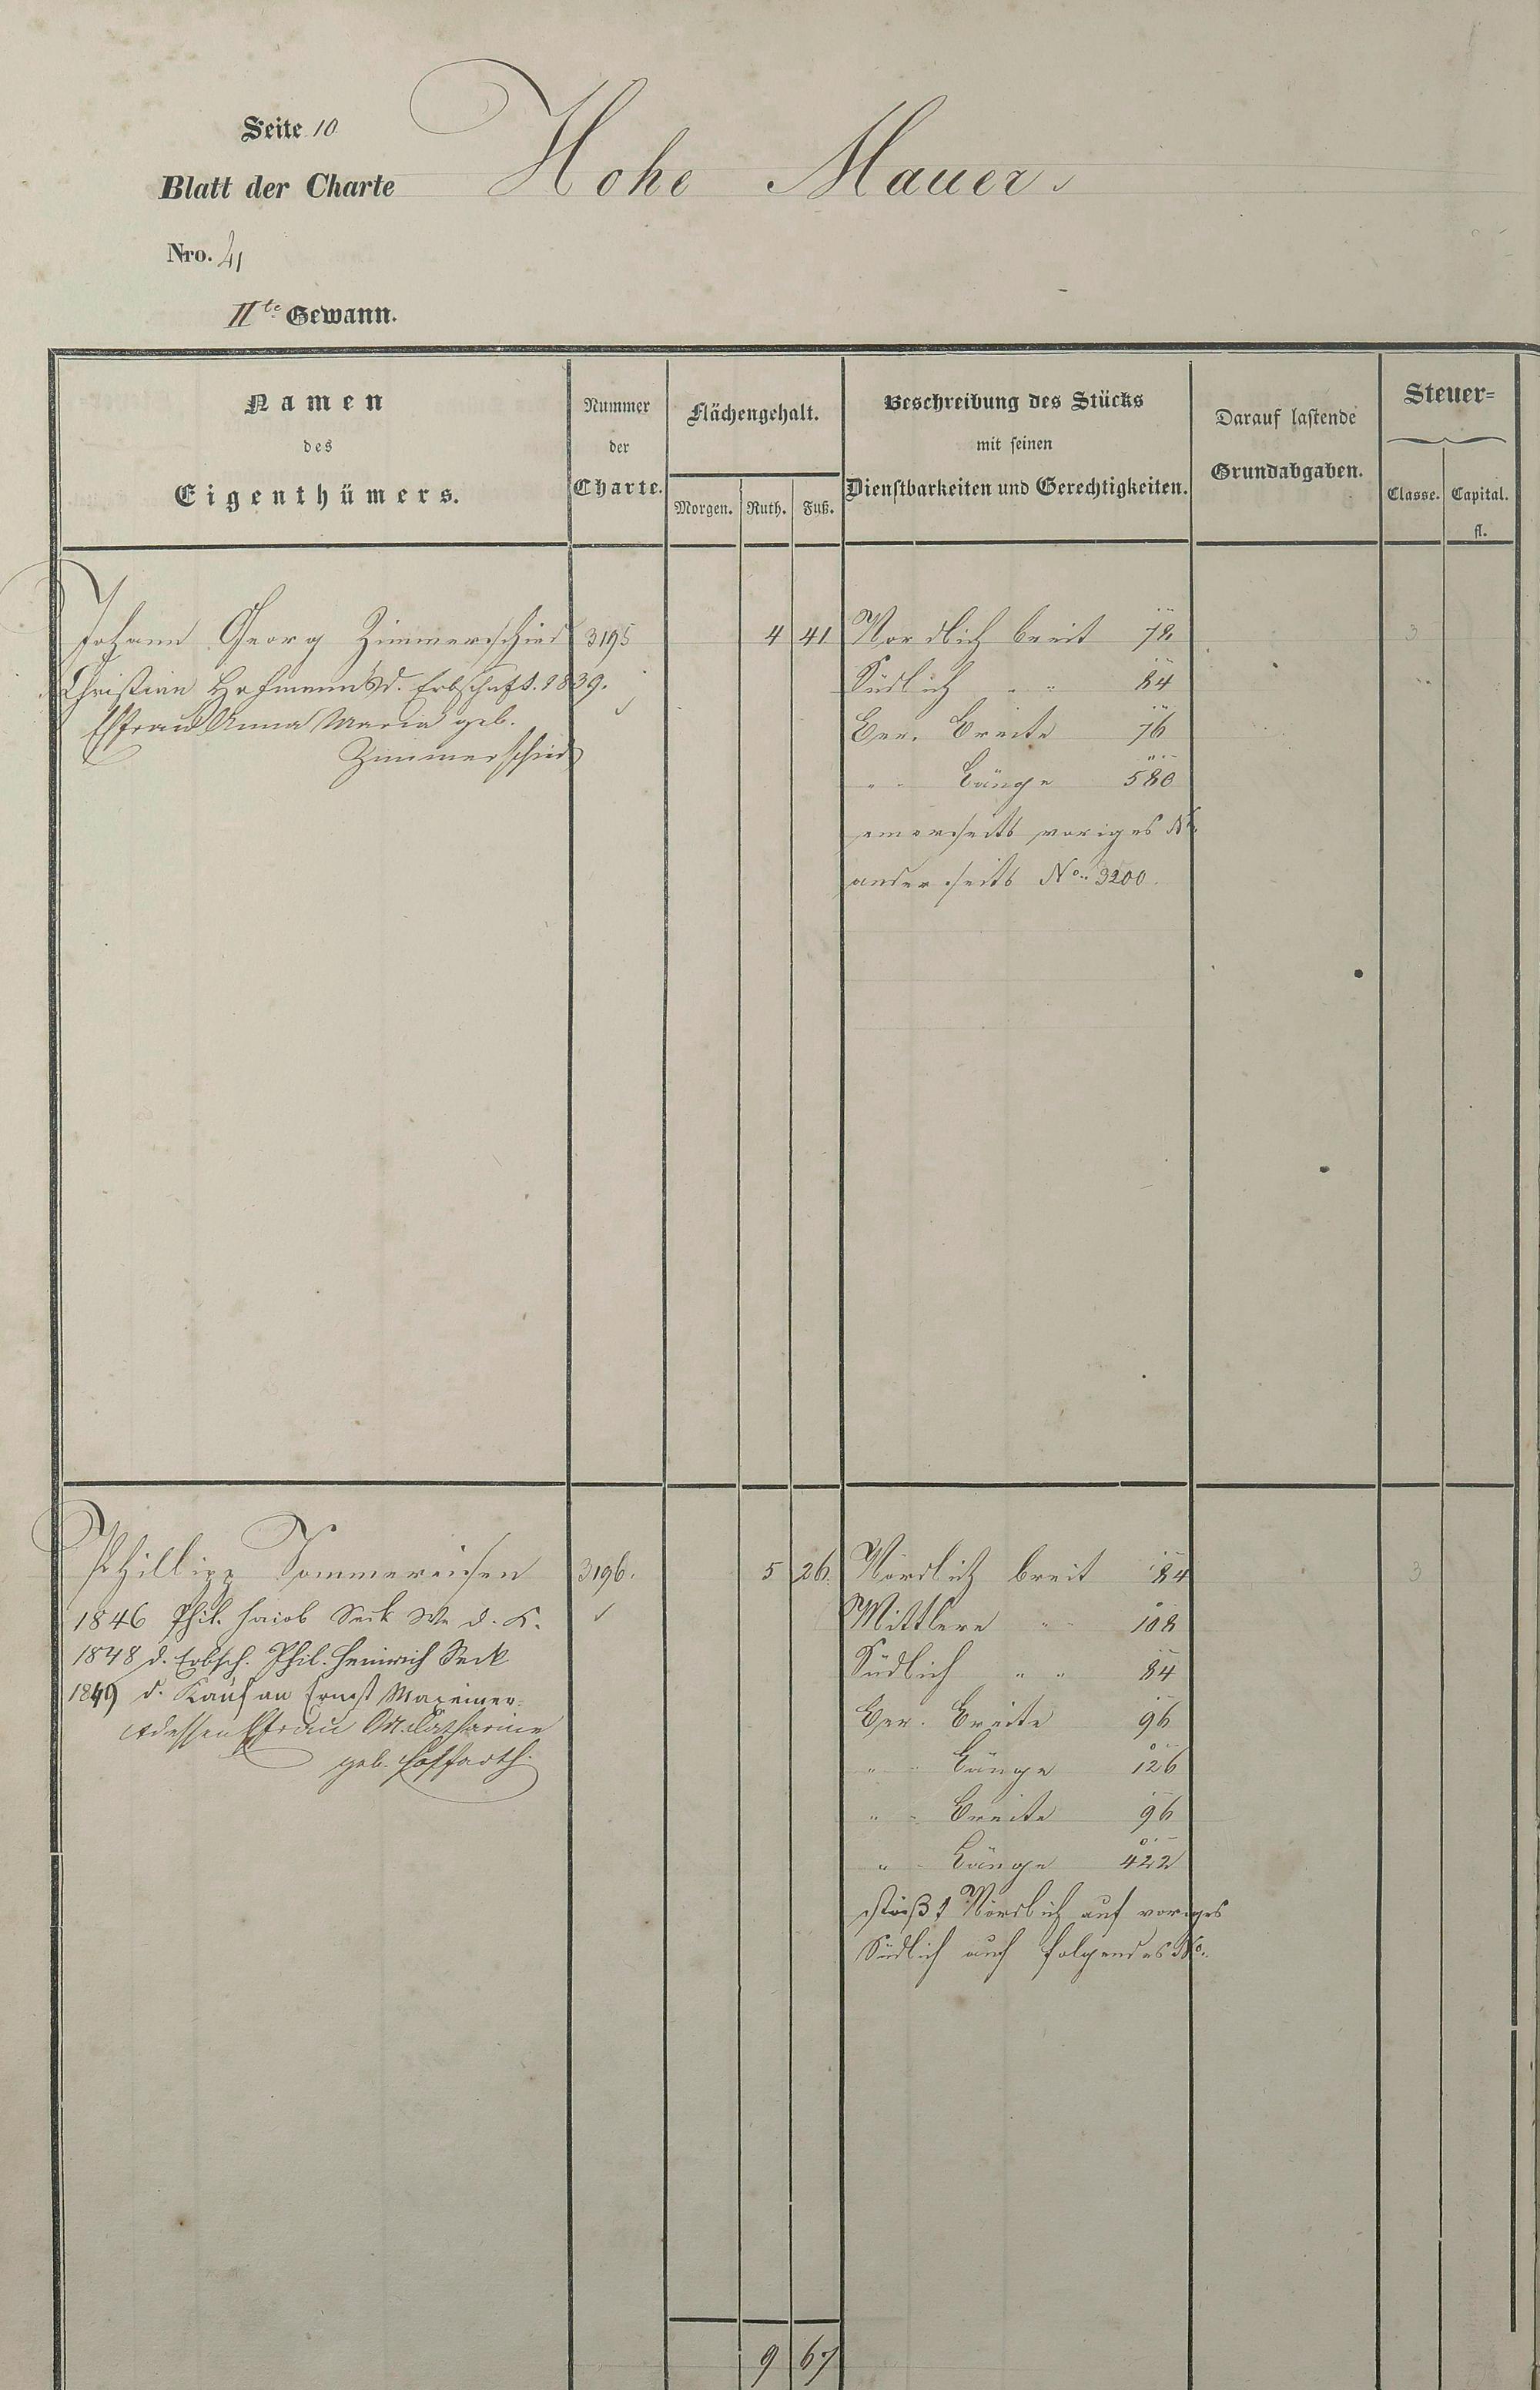 Seite 10
Blatt der Charte Hohe Mauer
Nro. 41
IIte Gewann.
Namen
des
Eigenthümers.
Nummer
der
Charte.
Flächengehalt.
Morgen. Ruth. Fuß.
Beschreibung des Stücks
mit seinen
Dienstbarkeiten und Gerechtigkeiten.
Darauf lastende
Grundabgaben.
Steuer=
Classe. Capital.
fl.
Johann Georg Zimmerschied 3195 4 41 Nordlich breit 78 3
Christian Hofmann d. Erbschaft. 1839. Südlich " " 84
Efrau Anna Maria geb. Ver. Breite 76
Zimmerschied
" " Länge 580
einerseits voriges No.
anderseits No. 3200.
Phillipp Sommereisen 3196. 5 26. Nördlich breit 84 3
1846 Phil. Jacob Seck We d. K. Mittlere " 108
1848 d. Erbsch. Phil. Heinrich Seck Südlich " " 84
1849 d. Kauf an Ernst Maxeiner
Ver. Breite 96
dessen Efrau M. Catharine
geb. Hoffarth. " " Länge 126
" " Breite 96
" " Länge 422
stößt Nördlich auf voriges
Südlich auf folgendes No.
9 67